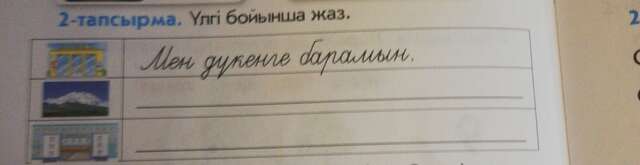 2-тапсырма. Үлгі бойынша жаз.
Мен дүкенге барамын.